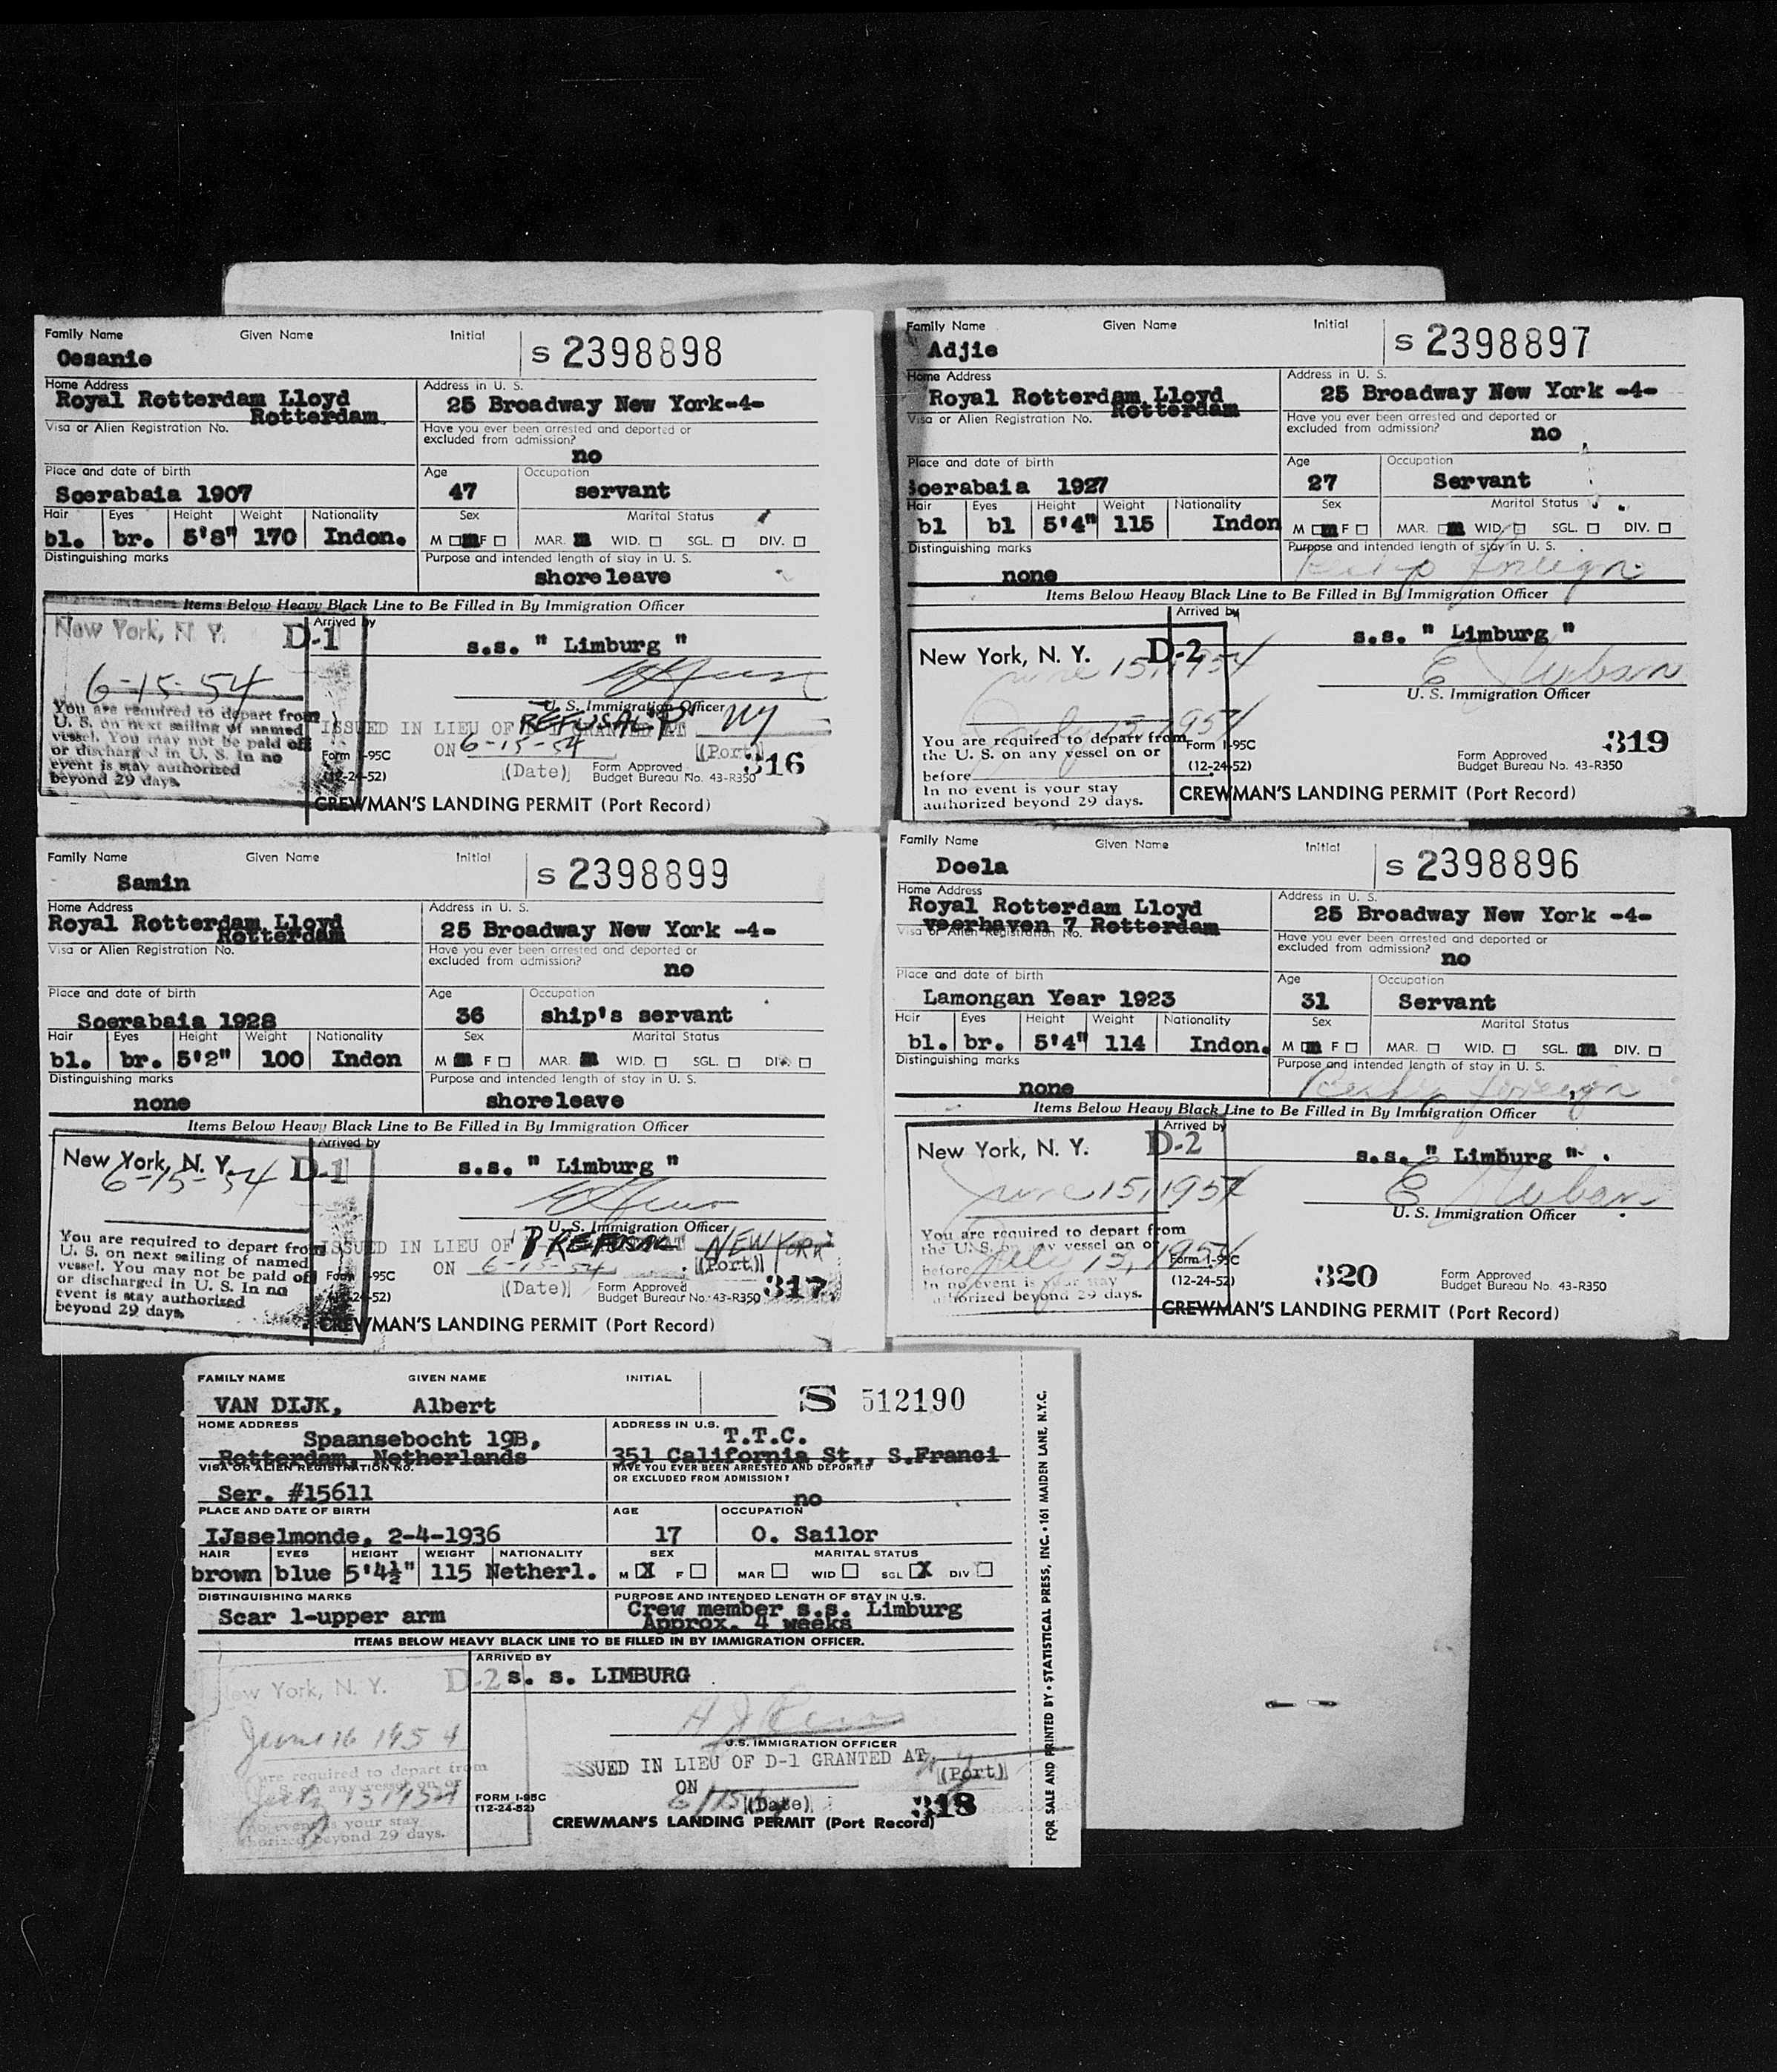 Family Name Given Name Initial
Oesanie S 2398898
Home Address Address in U. S.
Royal Rotterdam Lloyd 25 Broadway New York-4-
Rotterdam.
Visa or Alien Registration No. Have you ever been arrested and deported or
excluded from admission?
no
Place and date of birth Age Occupation
Soerabaia 1907 47 servant
Hair Eyes Height Weight Nationality Sex Marital Status
bl. br. 5'8" 170 Indon. M F MAR. WID. SGL. DIV.
Distinguishing marks Purpose and intended length of stay in U. S.
shore leave
Items Below Heavy Black Line to Be Filled in By Immigration Officer
New York, N. Y. D-1 Arrived by
s.s. " Limburg "
6-15-54
U. S. Immigration Officer
You are required to depart from
U. S. on next sailing of named
vessel. You may not be paid off
or discharged in U. S. In no
event is stay authorized
beyond 29 days.
ISSUED IN LIEU OF REFUSAL "P" GRANTED AT NY
ON 6-15-54 (Port)
(Date)
Form I-95C
(12-24-52)
Form Approved
Budget Bureau No. 43-R350
316
CREWMAN'S LANDING PERMIT (Port Record)
Family Name Given Name Initial
Adjie S 2398897
Home Address Address in U. S.
Royal Rotterdam Lloyd 25 Broadway New York -4-
Rotterdam
Visa or Alien Registration No. Have you ever been arrested and deported or
excluded from admission?
no
Place and date of birth Age Occupation
Soerabaia 1927 27 Servant
Hair Eyes Height Weight Nationality Sex Marital Status
bl bl 5'4" 115 Indon M F MAR. WID. SGL. DIV.
Distinguishing marks Purpose and intended length of stay in U. S.
none foreign
Items Below Heavy Black Line to Be Filled in By Immigration Officer
Arrived by
s.s. " Limburg "
New York, N. Y. D-2
June 15, 1954
E Urban
U. S. Immigration Officer
July 13, 1954
You are required to depart from
the U. S. on any vessel on or
before
In no event is your stay
authorized beyond 29 days.
Form I-95C
(12-24-52)
319
Form Approved
Budget Bureau No. 43-R350
CREWMAN'S LANDING PERMIT (Port Record)
Family Name Given Name Initial
Samin S 2398899
Home Address Address in U. S.
Royal Rotterdam Lloyd 25 Broadway New York -4-
Rotterdam
Visa or Alien Registration No. Have you ever been arrested and deported or
excluded from admission?
no
Place and date of birth Age Occupation
Soerabaia 1928 36 ship's servant
Hair Eyes Height Weight Nationality Sex Marital Status
bl. br. 5'2" 100 Indon M F MAR. WID. SGL. DIV.
Distinguishing marks Purpose and intended length of stay in U. S.
none shoreleave
Items Below Heavy Black Line to Be Filled in By Immigration Officer
New York, N. Y. D-1 Arrived by
s.s. " Limburg "
6-15-54
U. S. Immigration Officer
You are required to depart from
U. S. on next sailing of named
vessel. You may not be paid off
or discharged in U. S. In no
event is stay authorized
beyond 29 days.
ISSUED IN LIEU OF P REFUSAL AT NEW YORK
ON 6-15-54 (Port)
(Date)
Form I-95C
(12-24-52)
Form Approved
Budget Bureau No. 43-R350
317
CREWMAN'S LANDING PERMIT (Port Record)
Family Name Given Name Initial
Doela S 2398896
Home Address Address in U. S.
Royal Rotterdam Lloyd 25 Broadway New York -4-
Veerhaven 7 Rotterdam
Visa or Alien Registration No. Have you ever been arrested and deported or
excluded from admission?
no
Place and date of birth Age Occupation
Lamongan Year 1923 31 Servant
Hair Eyes Height Weight Nationality Sex Marital Status
bl. br. 5'4" 114 Indon. M F MAR. WID. SGL. DIV.
Distinguishing marks Purpose and intended length of stay in U. S.
none foreign
Items Below Heavy Black Line to Be Filled in By Immigration Officer
Arrived by
New York, N. Y. D-2 s.s. " Limburg "
June 15, 1954 E Urban
U. S. Immigration Officer
You are required to depart from
the U. S. on any vessel on or
before July 13, 1954
In no event is your stay
authorized beyond 29 days.
Form I-95C
(12-24-52)
320
Form Approved
Budget Bureau No. 43-R350
CREWMAN'S LANDING PERMIT (Port Record)
FAMILY NAME GIVEN NAME INITIAL
VAN DIJK, Albert S 512190
HOME ADDRESS ADDRESS IN U.S.
Spaansebocht 19B, T.T.C.
Rotterdam, Netherlands 351 California St., S.Franci
VISA OR ALIEN REGISTRATION NO. HAVE YOU EVER BEEN ARRESTED AND DEPORTED
OR EXCLUDED FROM ADMISSION?
Ser. #15611 no
PLACE AND DATE OF BIRTH AGE OCCUPATION
IJsselmonde, 2-4-1936 17 O. Sailor
HAIR EYES HEIGHT WEIGHT NATIONALITY SEX MARITAL STATUS
brown blue 5'4½" 115 Netherl. M X F MAR WID SGL X DIV
DISTINGUISHING MARKS PURPOSE AND INTENDED LENGTH OF STAY IN U.S.
Scar l-upper arm Crew member s.s. Limburg
Approx. 4 weeks
ITEMS BELOW HEAVY BLACK LINE TO BE FILLED IN BY IMMIGRATION OFFICER.
ARRIVED BY
New York, N. Y. D-2 s. s. LIMBURG
June 16 1954
U.S. IMMIGRATION OFFICER
are required to depart from
U. S. on any vessel on or
July 13 1954
no event is your stay
authorized beyond 29 days.
ISSUED IN LIEU OF D-1 GRANTED AT
(Port)
ON 6/15/54
(Date)
FORM I-95C
(12-24-52)
318
CREWMAN'S LANDING PERMIT (Port Record)
FOR SALE AND PRINTED BY • STATISTICAL PRESS, INC. • 161 MAIDEN LANE, N.Y.C.